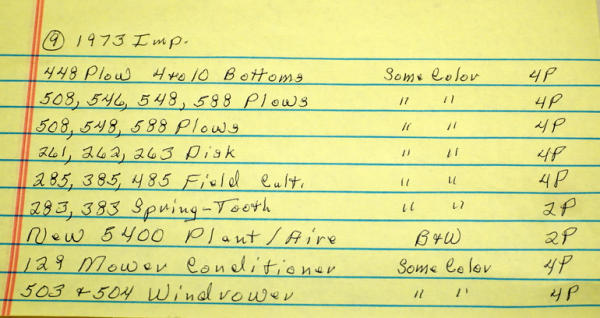 ⑨ 1973 Imp.
448 Plow 4 to 10 Bottoms Some Color 4P
508, 546, 548, 588 Plows " " 4P
508, 548, 588 Plows " " 4P
261, 262, 263 Disk " " 4P
285, 385, 485 Field Cult. " " 4P
283, 383 Spring-Tooth " " 2P
New 5400 Plant/Aire B&W 2P
129 Mower Conditioner Some Color 4P
503 & 504 Windrower " " 4P